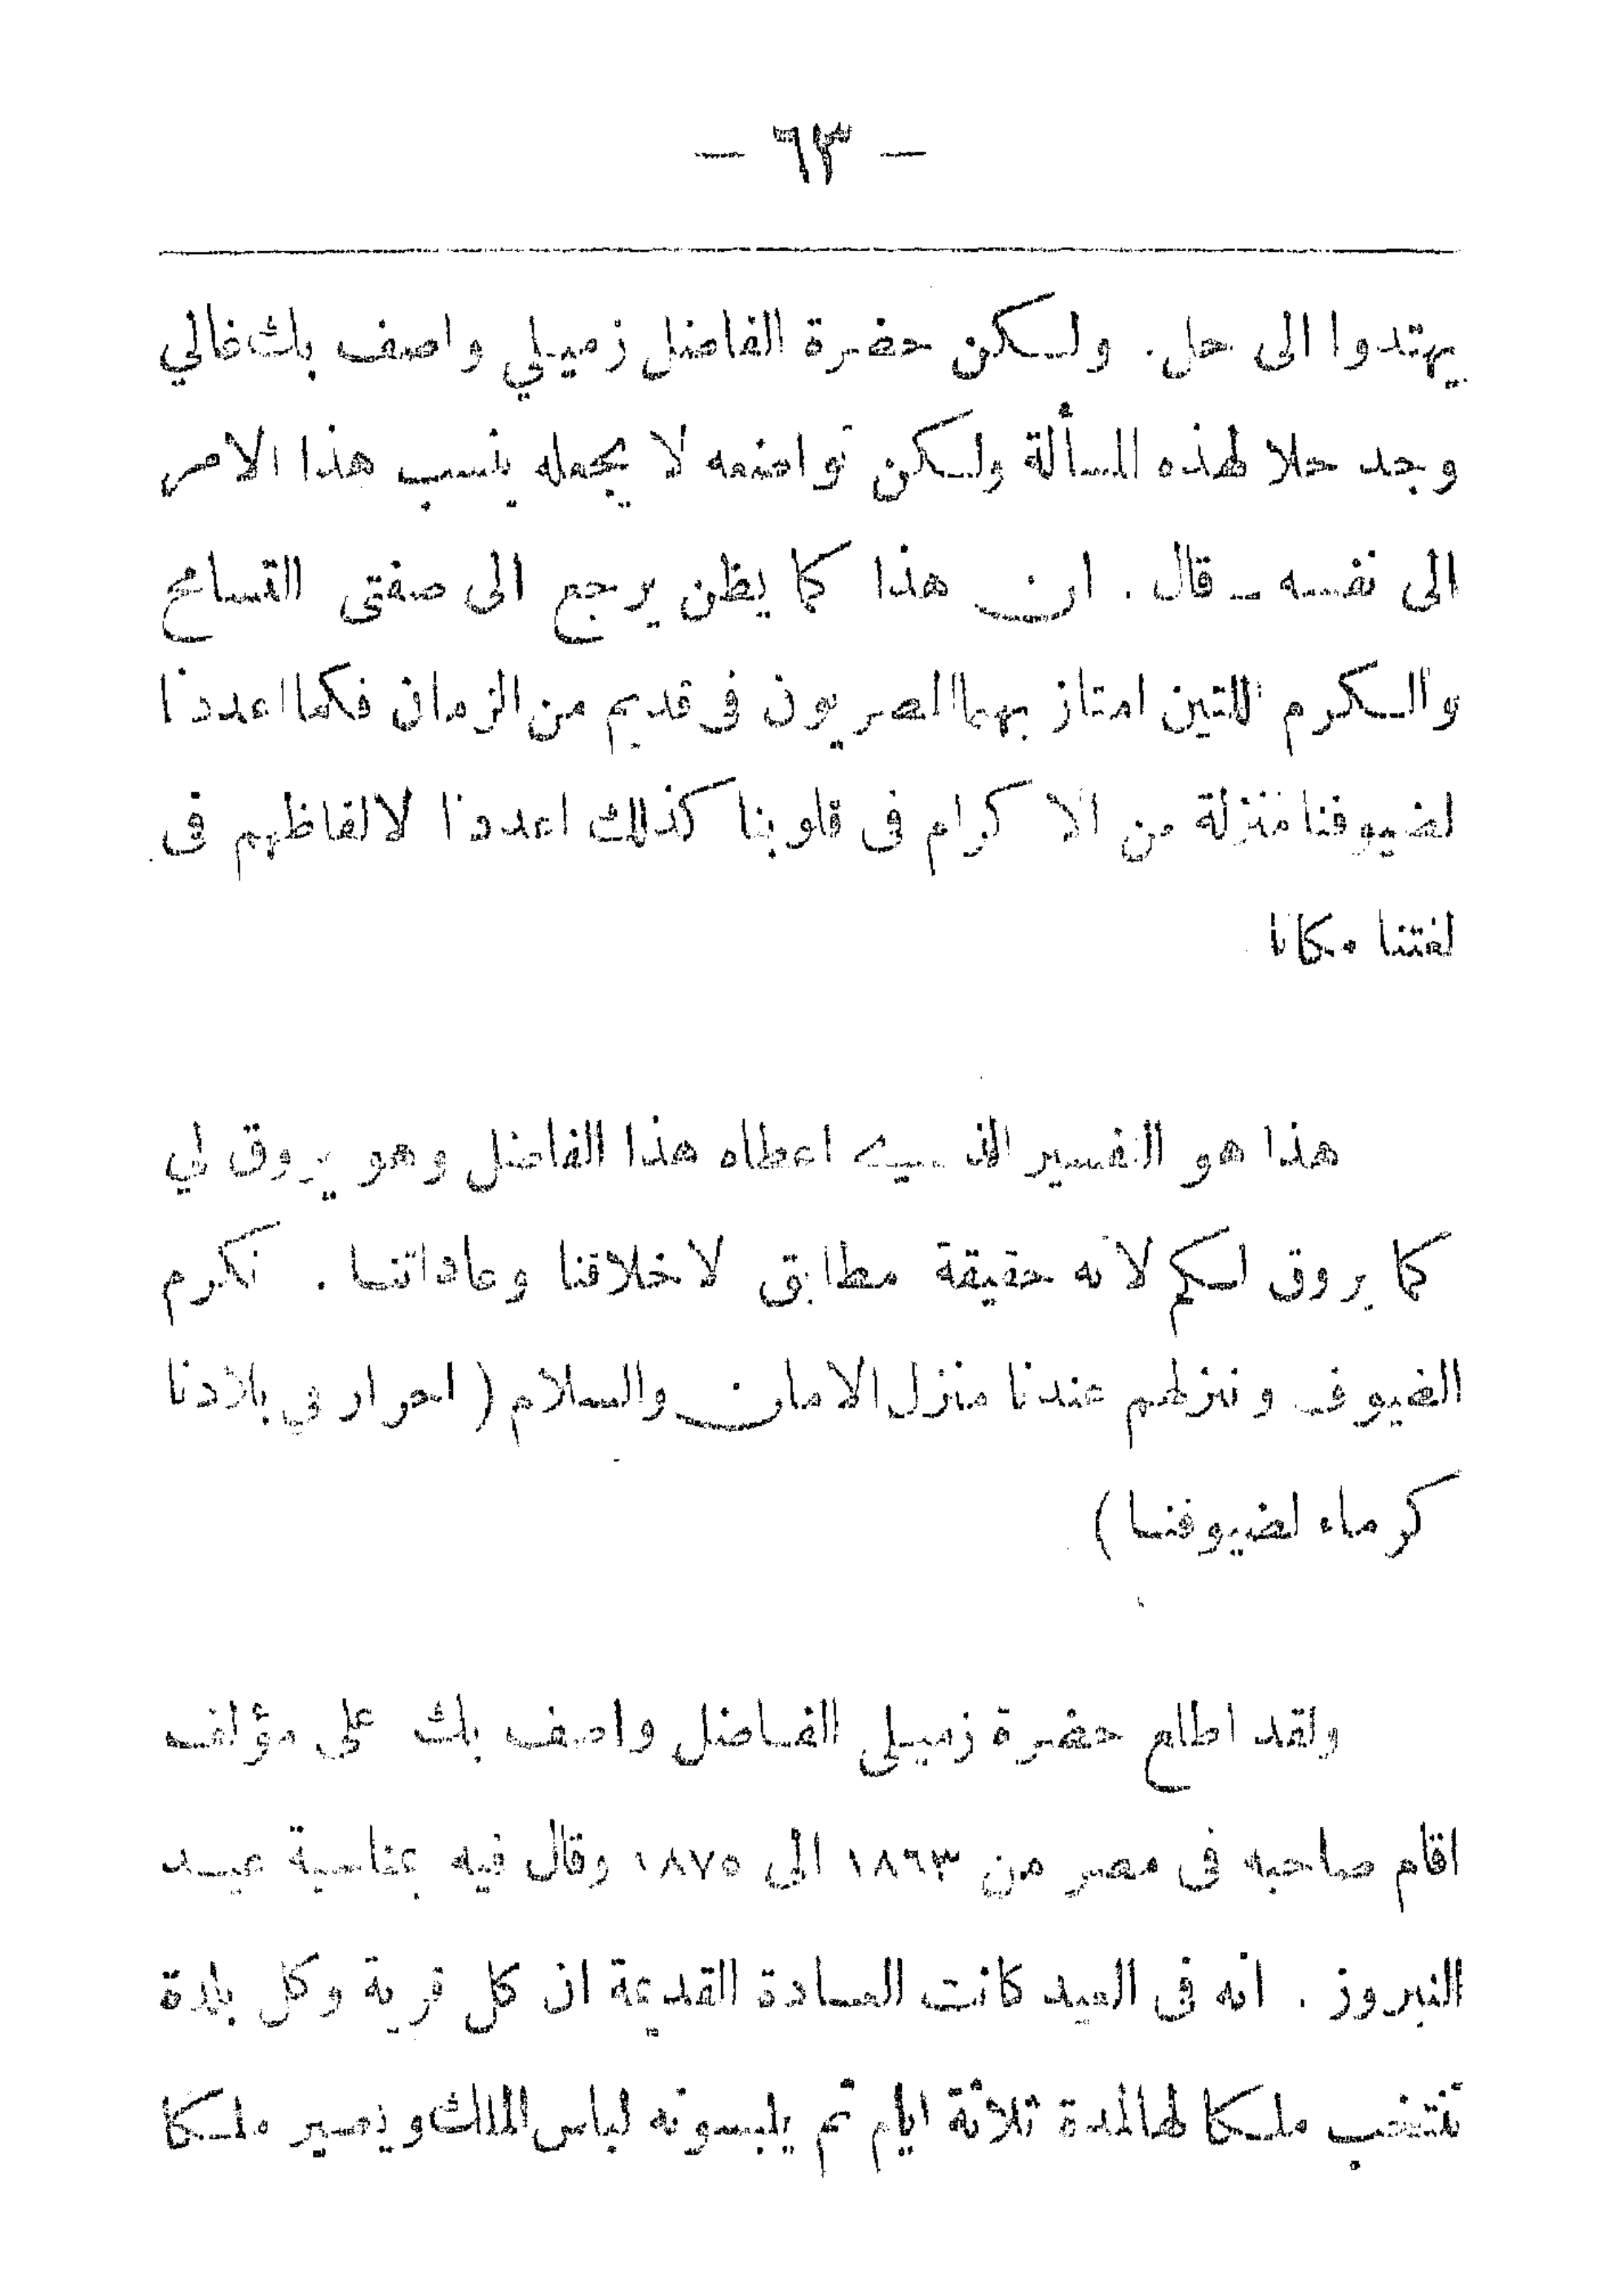 — ٦٣ —
يهتدوا الى حل. ولكن حضرة الفاضل زميلي واصف بك غالي
وجد حلا لهذه المسألة ولكن تواضعه لا يجعله ينسب هذا الامر
الى نفسه – قال . ان هذا كما يظن يرجع الى صفتى التسامح
والكرم اللتين امتاز بهما المصريون فى قديم من الزمان فكما اعددنا
لضيوفنا منزلة من الاكرام فى قلوبنا كذلك اعددنا لالفاظهم فى
لغتنا مكانا
هذا هو التفسير الذي اعطاه هذا الفاضل وهو يروق لي
كما يروق لكم لانه حقيقة مطابق لاخلاقنا وعاداتنا . نكرم
الضيوف وننزلهم عندنا منزل الامان والسلام ( احرار في بلادنا
كرماء لضيوفنا )
ولقد اطلع حضرة زميلى الفاضل واصف بك على مؤلف
اقام صاحبه فى مصر من ١٨٦٣ الى ١٨٧٥ وقال فيه بمناسبة عيد
النيروز . انه فى العيد كانت العادة القديمة ان كل قرية وكل بلدة
تنتخب ملكا لها لمدة ثلاثة ايام ثم يلبسونه لباس الملك ويصير ملكا